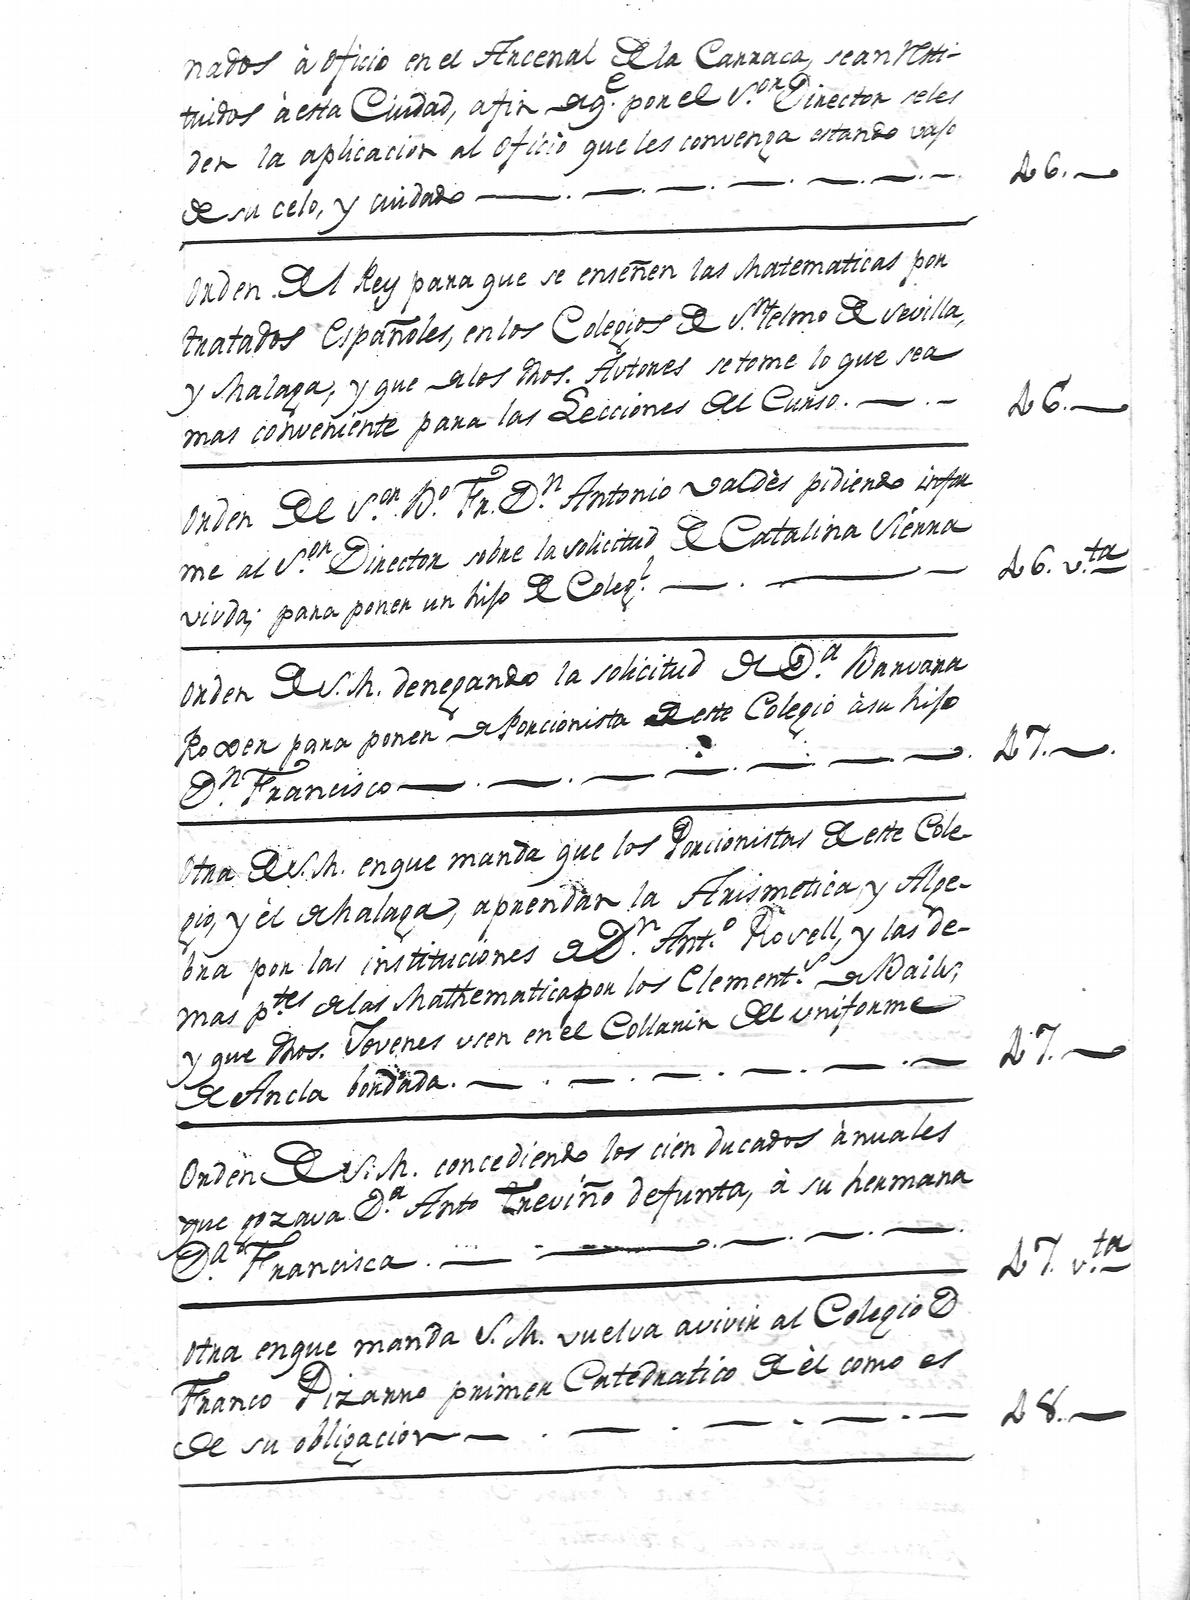 nados à oficio en el Arcenal de la Carraca, sean resti-
tuidos à esta Ciudad, a fin de q.e por el S.or Director se les
den la aplicacion al oficio que les convenga estando vajo
de su celo, y cuidado 46.
Orden del Rey para que se enseñen las Matematicas por
tratados Españoles, en los Colegios de S.n telmo de Sevilla,
y Malaga, y que de los dhos. Autores se tome lo que sea
mas conveniente para las Lecciones del Curso. 46.
Orden del S.or B.o Fr. D.n Antonio valdès pidiendo infor
me al S.or Director sobre la solicitud de Catalina Sierra
viuda; para poner un hijo de Coleg.l 46. v.ta
Orden de S. M. denegando la solicitud de D.a Barvara
Roxer para poner de Porcionista de este Colegio à su hijo
D.n Francisco 47.
Otra de S. M. en que manda que los Porcionistas de este Cole-
gio, y èl de Malaga, aprendan la Arismetica, y Alge-
bra por las instituciones de D.n Ant.o Rovell, y las de-
mas p.tes de las Mathematicas por los Element.s de Bails,
y que dhos. Jovenes usen en el Collarin del uniforme
de Ancla bordada. 47.
Orden de S. M. concediendo los cien ducados ànuales
que gozava D.a Anto Treviño defunta, à su hermana
D.a Francisca. 47. v.ta
Otra en que manda S. M. vuelva a vivir al Colegio D
Franco Pizarro primer Catedratico de èl como es
de su obligacion 48.